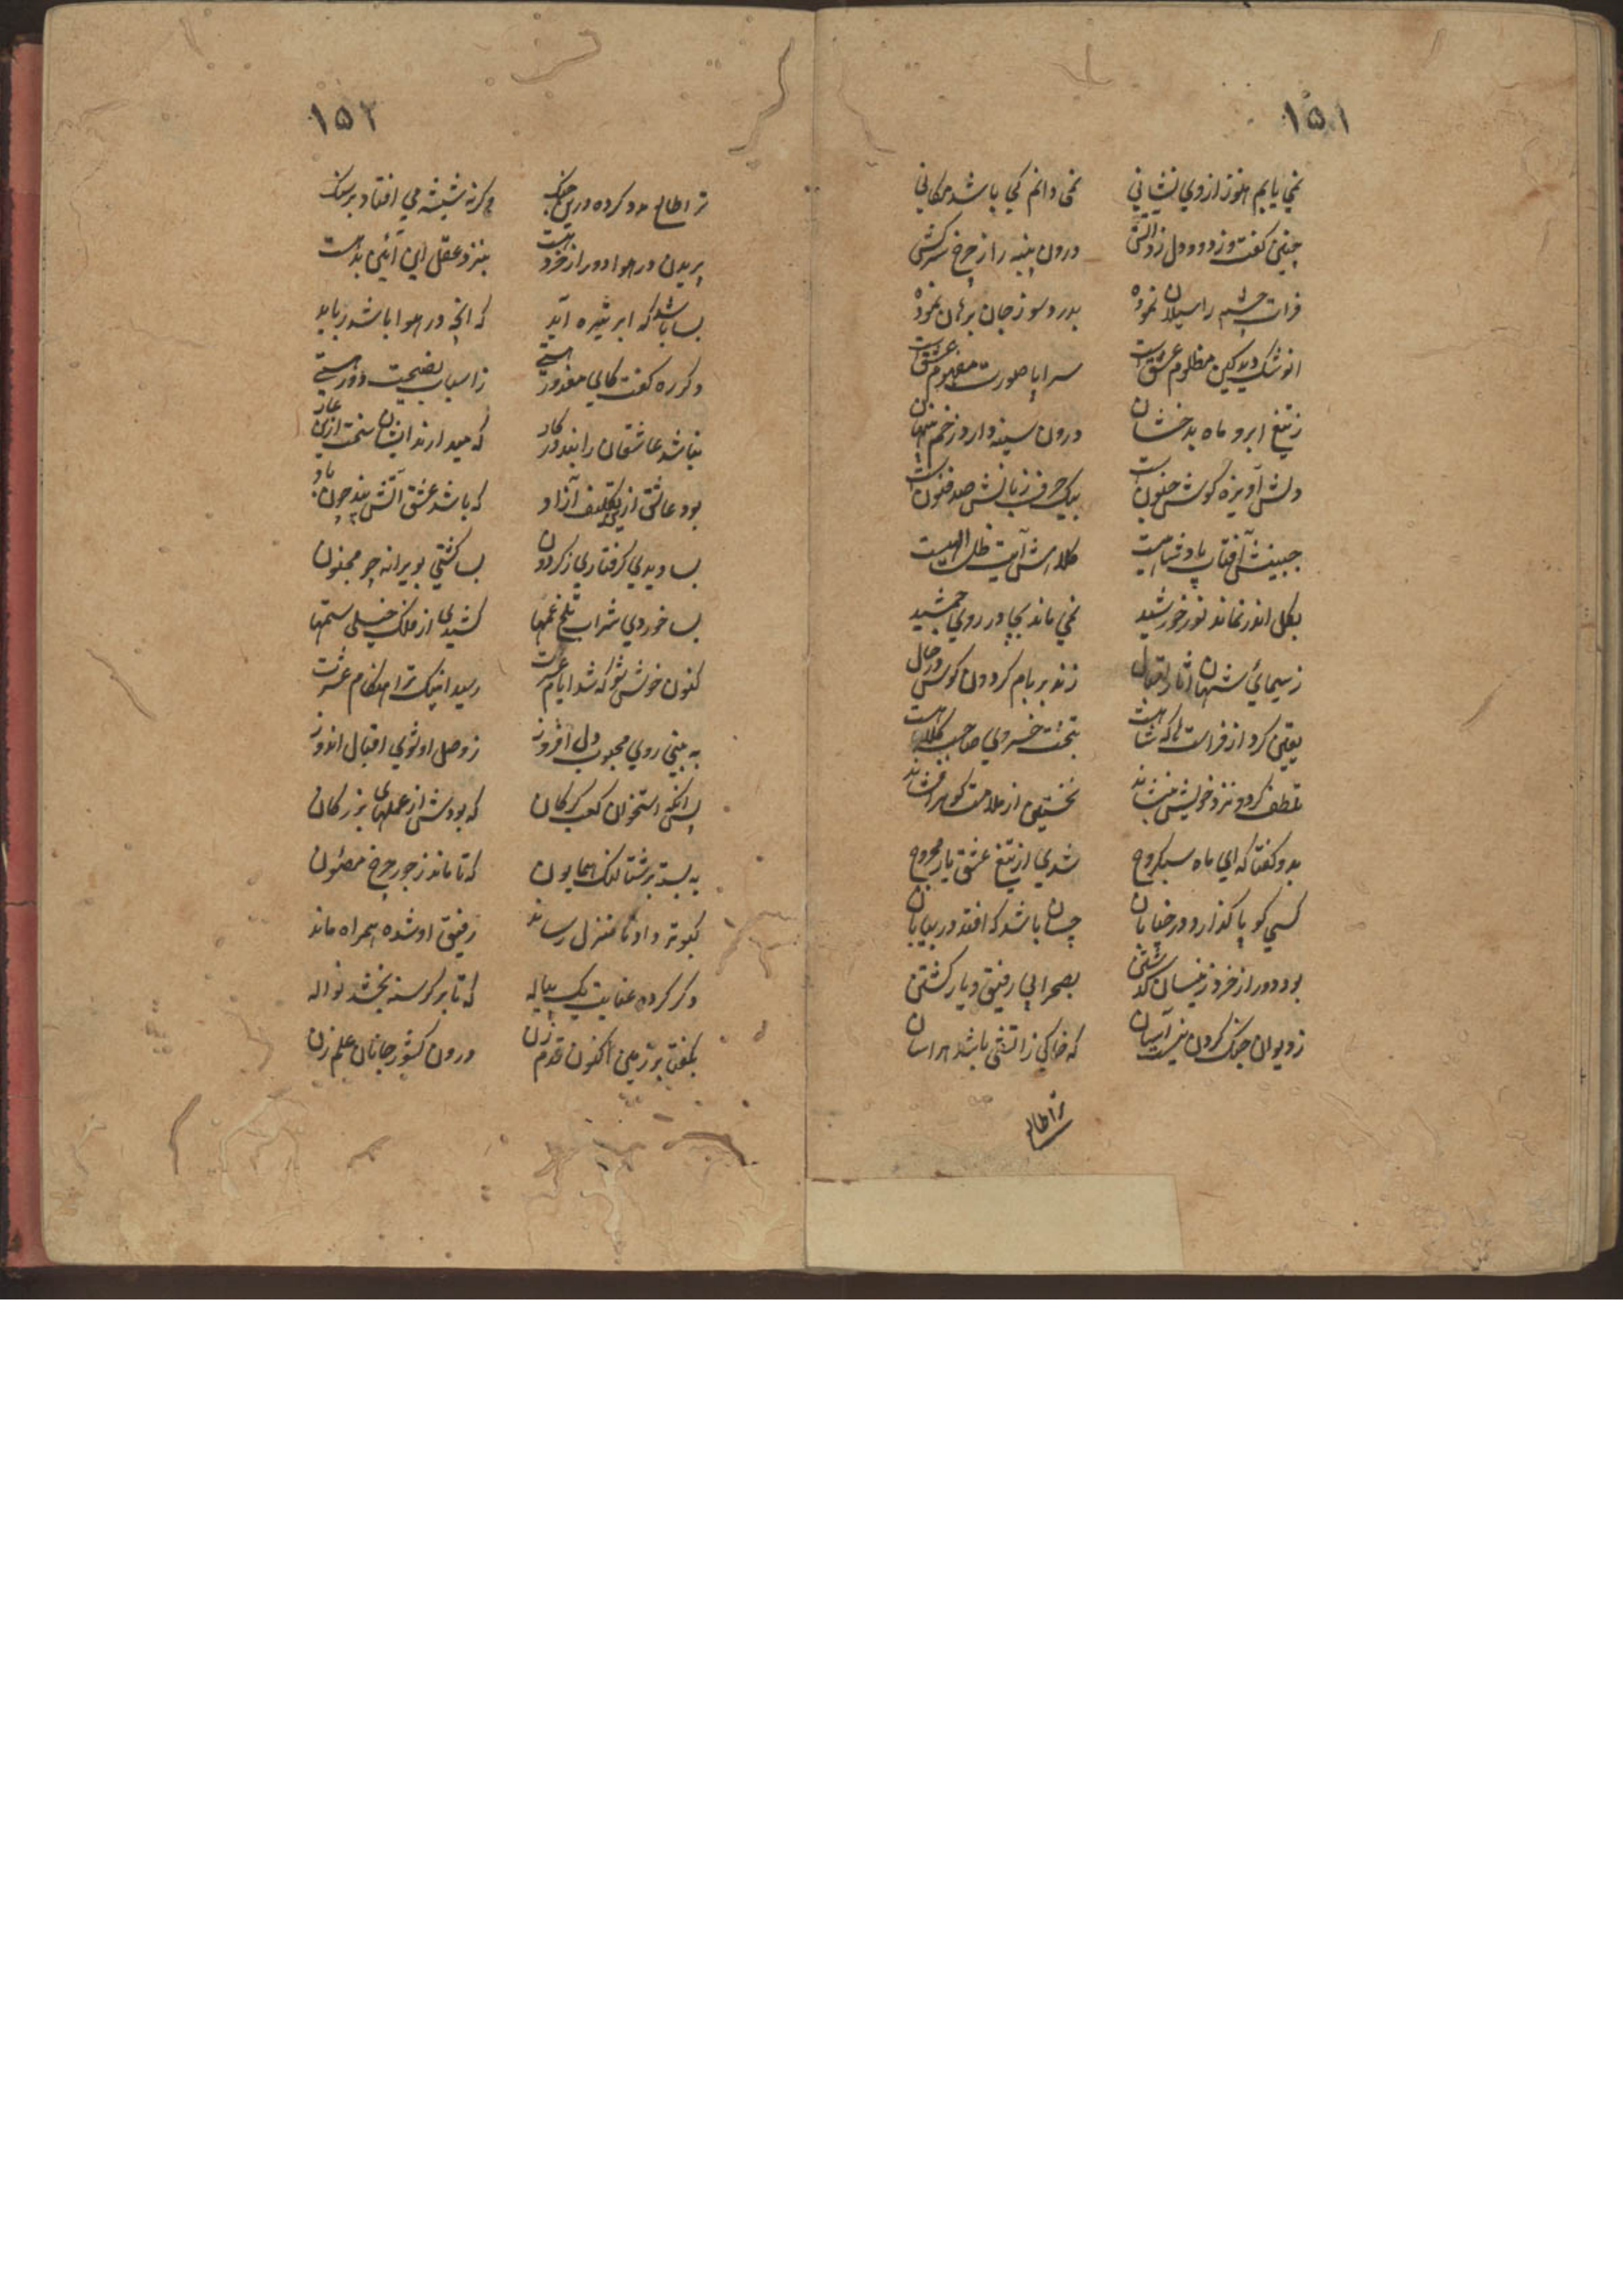 ۱۵۱
نمي يابم هنوز از وي نشاني نمي دانم كجي باشد مكاني
چنين كفت و ز دود دل زد آتش درون پنبه را از چرخ سركش
فرات چشم را سيلان نموده بدرد و سوز جان برهان نموده
انوشك ديد كين مظلوم عشق است سراپا صورت مفهوم عشق است
ز تيغ ابرو ماه بدخشان درون سينه دارد زخم پنهان
دلش آويزه كوش جنون است بيك حرف زبانش صد فنون است
جبينش آفتاب پادشاهيست كلامش آيت ظل الهيست
بكل اندر نماند نور خورشيد نمي ماند بجا در روي جمشيد
ز سيمائ شهان آثار اقبال زند بر بام كردون كوس در حال
يقين كرد از فراست ها كه شاه است بتخت خسروي صاحب كلاه است
تلطف كرد و نزد خويش بنشاند نخستين از ملامت كوهر افشاند
بدو كفتا كه اي ماه سبكروح شدي از تيغ عشق يار مجروح
كسي كو پا كذارد در خيابان چسان باشد كه افتد در بيابان
بود دور از خرد زينسان كذشتن بصحرا بي رفيق و يار كشتن
ز ديوان جنك كردن نيست آسان كه خاكي ز آتشي باشد هراسان
ترا طالع
۱۵۲
ترا طالع مدد كرده درين جنك وكرنه شيشه مي افتاد بر سنك
پريدن در هوا دور از خرد هست بنزد عقل اين آئين بد هست
بسا باشد كه ابر تيره آيد كه انچه در هوا باشد ربايد
دكر ره كفت كاي معذور هستي ز اسباب نصيحت دور هستي
نباشد عاشقان را پند در كار كه ميدارند ايشان سخت ازين عار
بود عاشق از تكليف آزاد كه باشد عشق آتش پند چون باد
بسا ديدي كرفتاري ز كردون بسا كشتي بويرانه چو مجنون
بسا خوردي شراب تلخ غمها كشيدي از فلك خيلي ستمها
كنون خوش شو كه شد ايام عسرت رسيد اينك ترا هنكام عشرت
به بيني روي محبوب دل افروز ز وصل او شوي اقبال اندوز
پس انكه استخوان كعب كركان كه بودش از عملهاي بزركان
به بسته بر شتالنك همايون كه تا ماند ز جور چرخ مصئون
كبوتر داد تا منزل رساند رفيق او شده همراه ماند
دكر كرده عنايت يك پياله كه تا بر كرسنه بخشد نواله
بكفتا بر زمين اكنون قدم زن درون كشور جانان علم زن